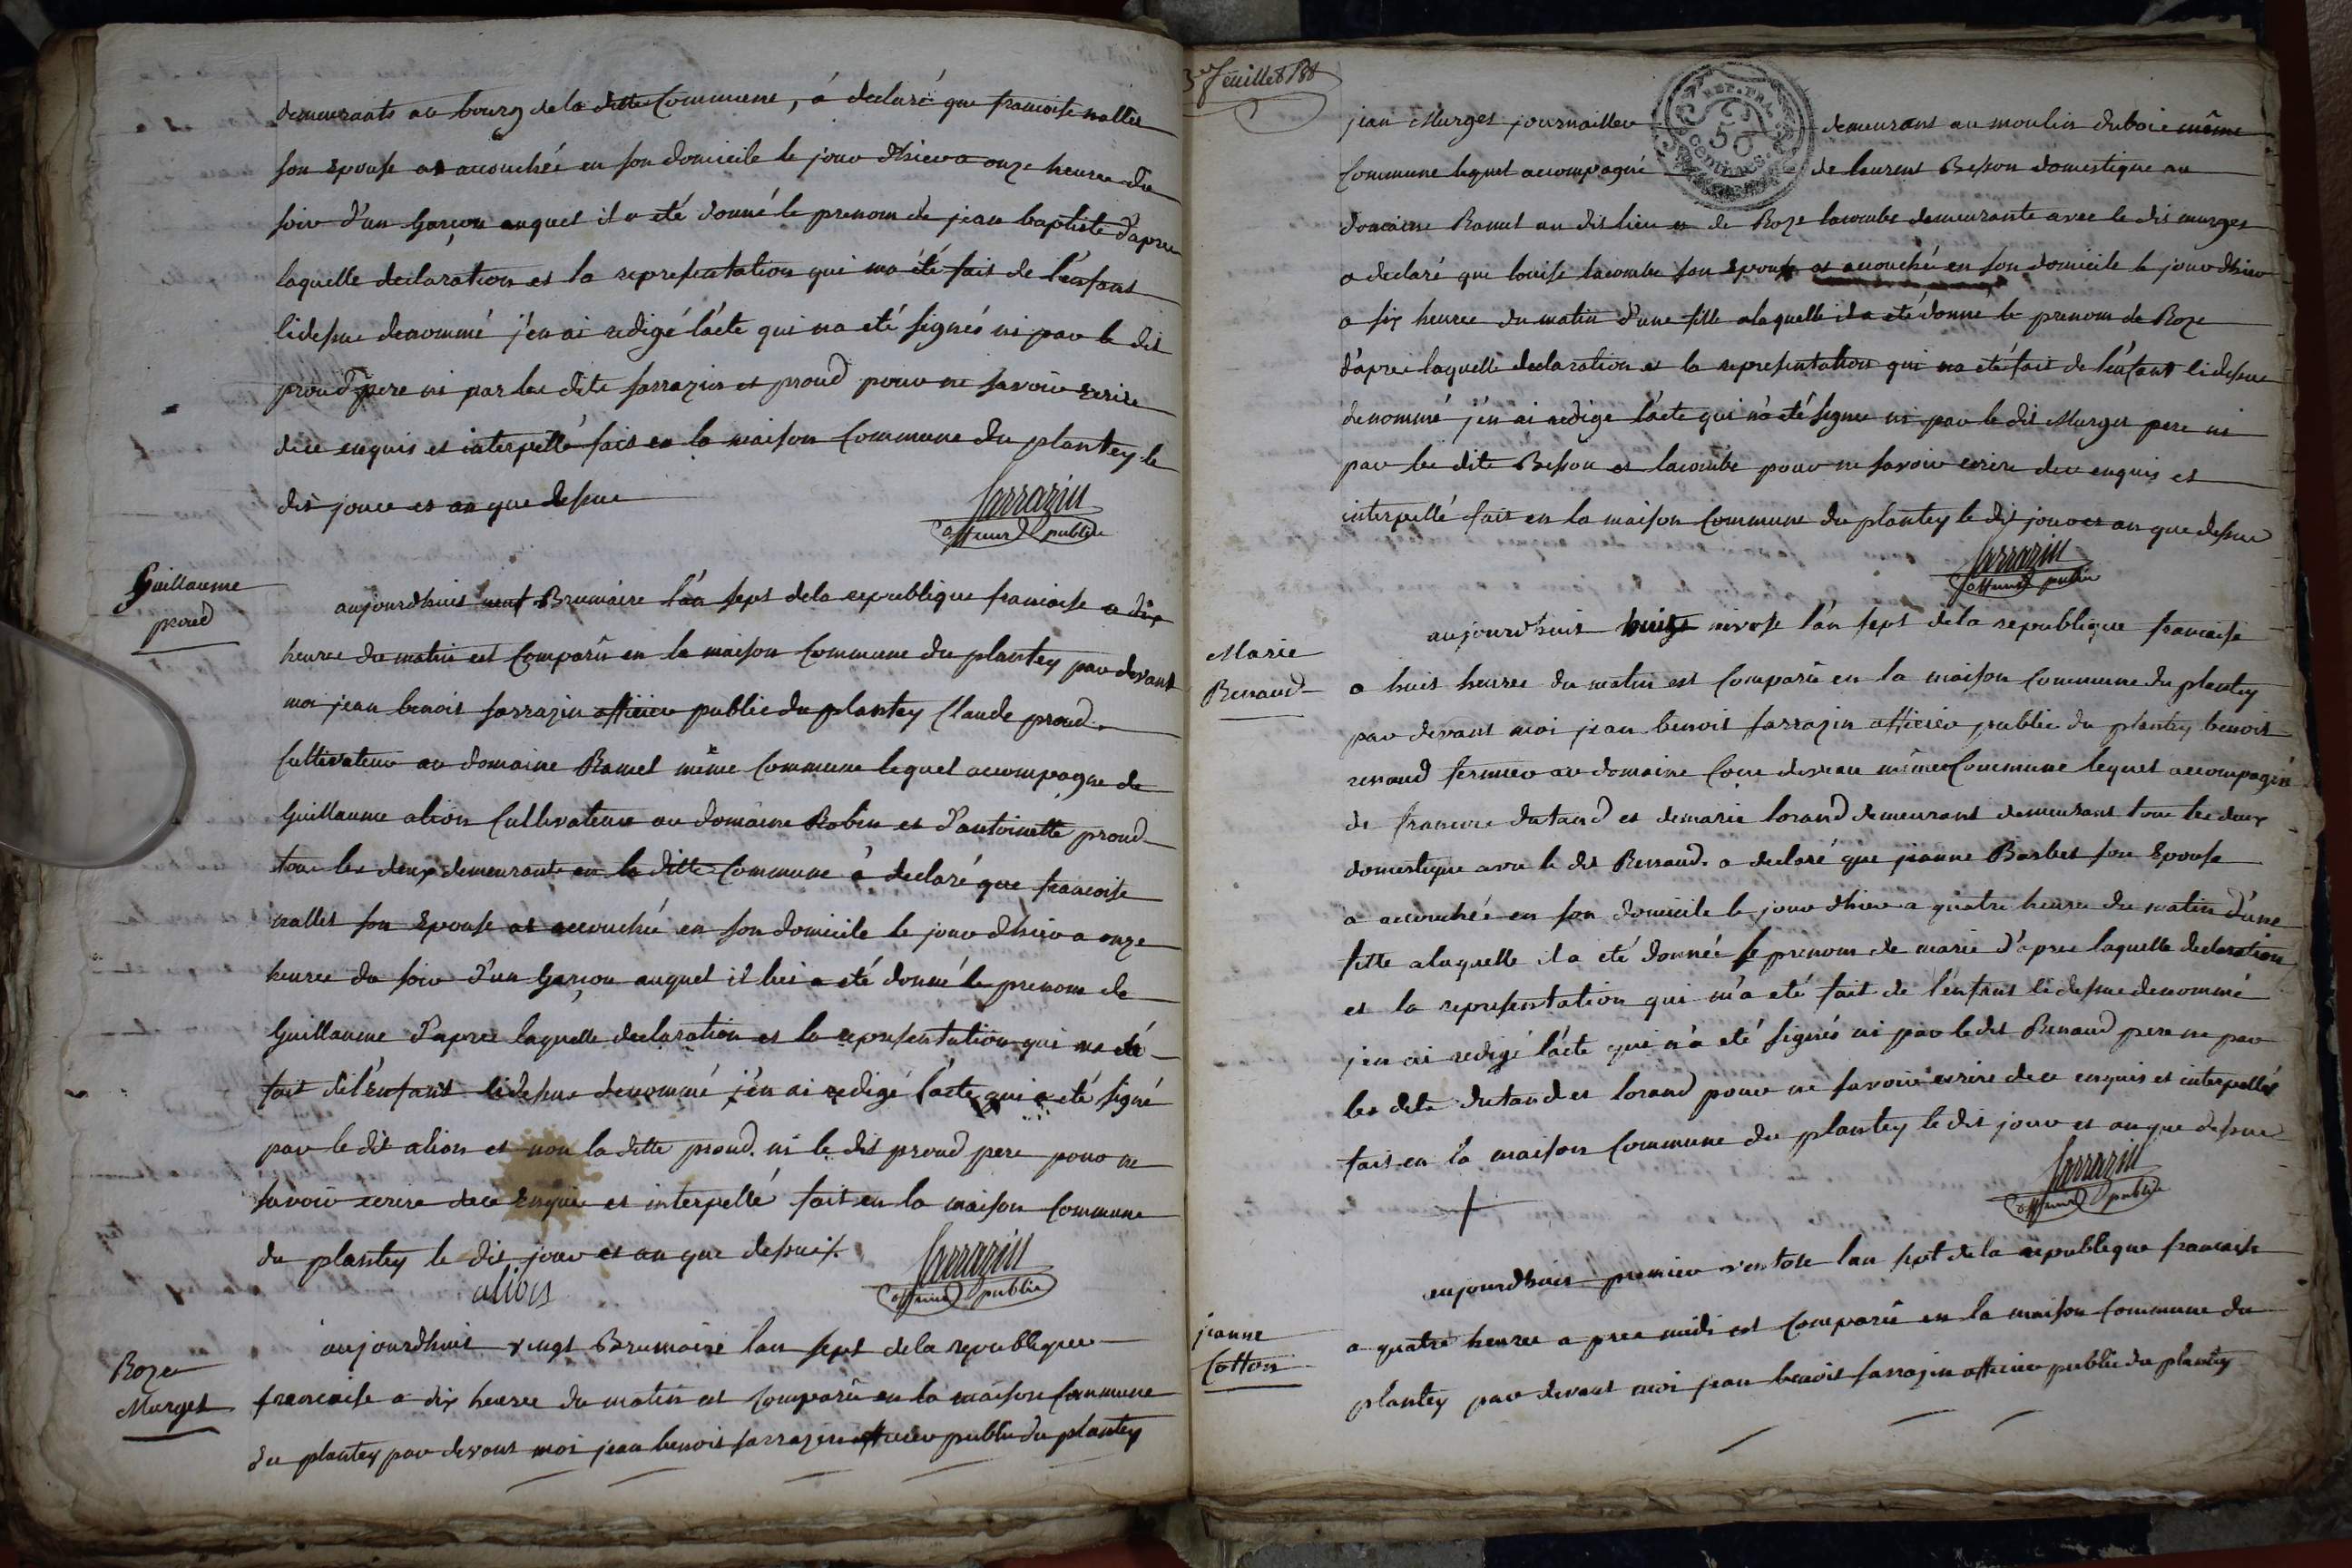 demeurants au bourg de la ditte Commune, á declaré que francoise nallet
son Epouse at accouchée en son domicile le jour d'hier a onze heures du
soir d'un Garçon auquel il a eté donné le prenom de jean baptiste d'apres
laquelle declaration et la representation qui ma été fait de l'enfant
cidesus denommé j'en ai redigé l'acte qui na eté signés ni par le dit
proud pere ni par les dits sarrazin et proud pour ne savoir Ecrire
dece enquis et interpellé fait en la maison Commune du plantey le
dit jours et an que desus
Sarrazin
officier public
Guillaume
proud
aujourdhuis neuf Brumaire l'an sept dela republique francoise a dix
heures du matin est Comparû en la maison Commune du plantey par devant
moi jean benoit sarrazin officier public du plantey Claude proud
Cultivateur au domaine Ramel même Commune lequel accompagne de
Guillaume alion Cultivateur au domaine Robin et d'antoinette proud
tous les deux demeurants en la ditte Commune á declaré que francoise
nallet son Epouse at accouchée en son domicile le jour d'hier a onze
heures du soir d'un Garçon auquel il lui a eté donné le prenom de
Guillaume d'apres laquelle declaration et la representation qui ma eté
fait del'enfant cidesus denommé j'en ai redigé l'acte qui a eté signé
par le dit alion et non la ditte proud ni le dit proud pere pour ne
savoir ecrire dece Enquis et interpellé fait en la maison Commune
du plantey le dit jour et an que desus
alion
Sarrazin
officier public
Roze
Murget
aujourdhuit vingt Brumaire lan sept dela republique
francaise a dix heures du matin est Comparû en la maison Commune
du plantey par devant moi jean benoit sarrazin officier public du plantey
3e feuillet
REP. FRA.
50
centimes
jean Murget journaillier demeurant au moulin dubois même
Commune lequel accompagné de laurent Besson domestique au
domaine Ramel au dit lieu et de Roze lacombe demeurante avec le dit murget
a declaré que louise lacombe son Epouse at accouchée en son domicile le jour d'hier
a six heures du matin d'une fille alaquelle il a eté donné le prenom de Roze
d'après laquelle declaration et la representation qui ma eté fait de l'enfant cidesus
denommé j'en ai redige l'acte qui n'a eté signe ni par le dit Murget pere ni
par les dits Besson et lacombe pour ne savoir ecrire dece enquis et
interpellé fait en la maison Commune du plantey le dit jour et an que desus
Sarrazin
officier public
Marie
Renaud
aujourd'huit nivose l'an sept dela republique francaise
a huit heures du matin est Comparû en la maison Commune du plantey
par devant moi jean benoit sarrazin officier public du plantey benoit
renaud fermier au domaine même Commune lequel accompagné
de francois dutand et demarie lorand demeurant demeurant tous les deux
domestique avec le dit Renaud a declaré que jeanne Barbet son Epouse
a accouchée en son domicile le jour d'hier a quatre heures du matin d'une
fille alaquelle il a eté donnée le prenom de marie d'apres laquelle declaration
et la representation qui m'a eté fait de l'enfant cidesus denommé
j'en ai redigé l'acte qui n'a eté signés ni par le dit Renaud pere ni par
les dits dutand et lorand pour ne savoir ecrire dece enquis et interpellés
fait en la maison Commune du plantey le dit jour et an que desus
Sarrazin
officier public
jeanne
Cotton
aujourdhuit premier ventose lan sept de la republique francaise
a quatre heures apres midi est Comparû en la maison Commune du
plantey par devant moi jean benoit sarrazin officier public du plantey